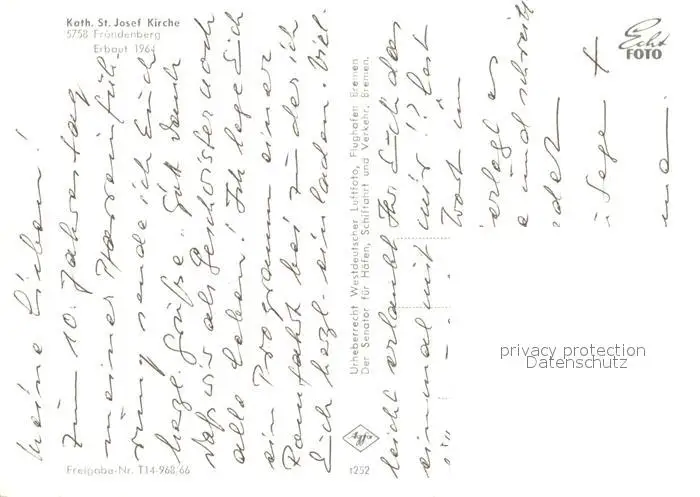 Kath. St. Josef Kirche
5758 Fröndenberg
Erbaut 1964
Meine Lieben!
Zum 10. Jahrestag
meiner Pfarreinfüh-
rung sende ich Euch
herzl. Grüße. Gott Dank
daß wir als Geschwister noch
alle leben! Ich lege Euch
ein Programm einer
Romfahrt bei zu der ich
Euch herzl. einladen. Viel-
leicht erlaubt Ihr Euch das
einmal mit mir!? Lest
Wort im
erlegt es
e und schreibt
det
Sege
Urheberrecht Westdeutscher Luftfoto, Flughafen Bremen
Der Senator für Häfen, Schiffahrt und Verkehr, Bremen.
Echt
FOTO
Agfa
Freigabe-Nr. T14-968/66
t252
privacy protection
Datenschutz